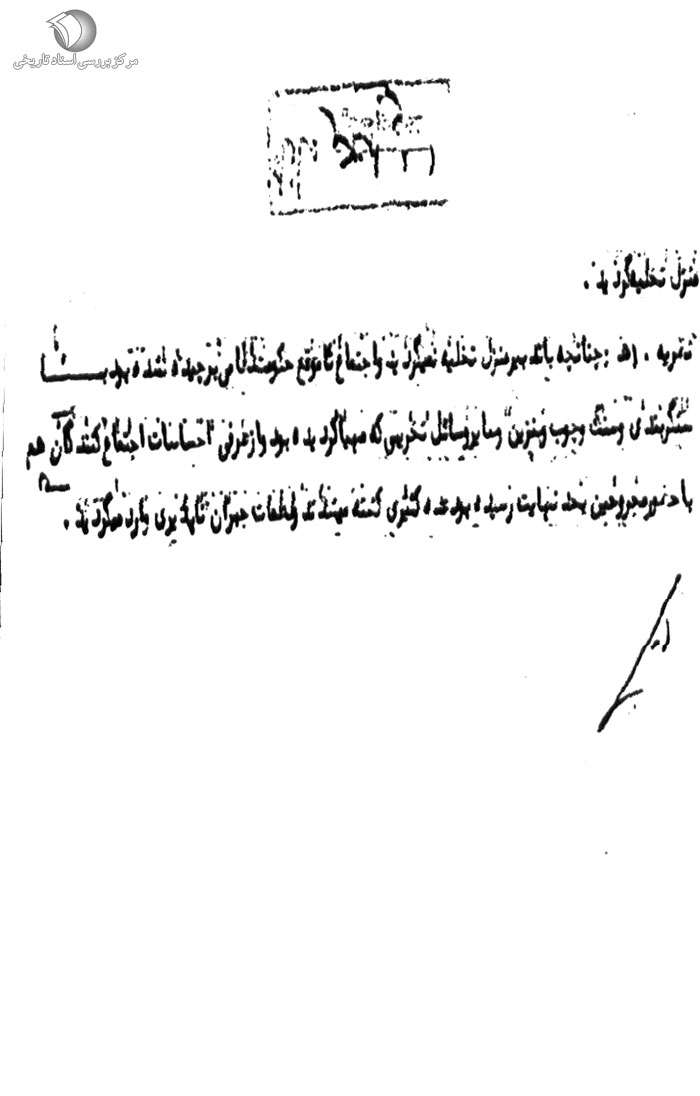 مرکز بررسی اسناد تاریخی
منزل تخلیه گردید .
نظریه . ۱هـ : چنانچه باند بیر منزل تخلیه نمیگردید و اجتماع تا موقع حکومت نظامی برچیده نشده بود با
سنگربندی و سنگ و چوب و بنزین و سایر وسائل تخریبی که مهیا گردیده بود و از طرفی احساسات اجتماع کنندگان هم
با حضور مجروحین بحد نهایت رسیده بود عده کثیری کشته میشدند و لطمات جبران ناپذیری وارد میگردید .